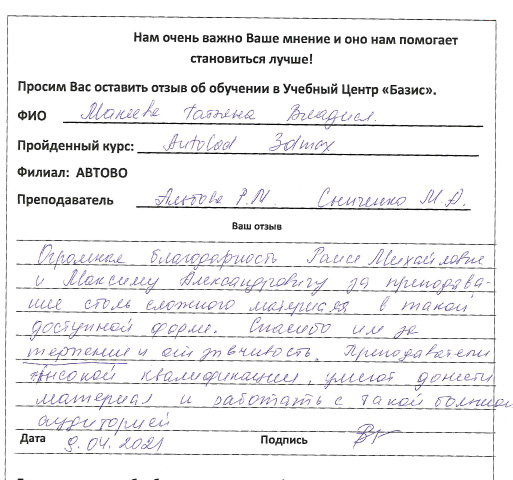 Нам очень важно Ваше мнение и оно нам помогает
становиться лучше!
Просим Вас оставить отзыв об обучении в Учебный Центр «Базис».
ФИО Макеева Татьяна Владисл.
Пройденный курс: AutoCad 3dmax
Филиал: АВТОВО
Преподаватель Р.М. М.А.
Ваш отзыв
Огромная благодарность Раисе Михайловне
и Максиму Александровичу за преподава-
ние столь сложного материала в такой
доступной форме. Спасибо им за
терпение и отзывчивость. Преподаватели
высокой квалификации, умеют донести
материал и работать с такой большой
аудиторией
Дата 9.04.2021 Подпись